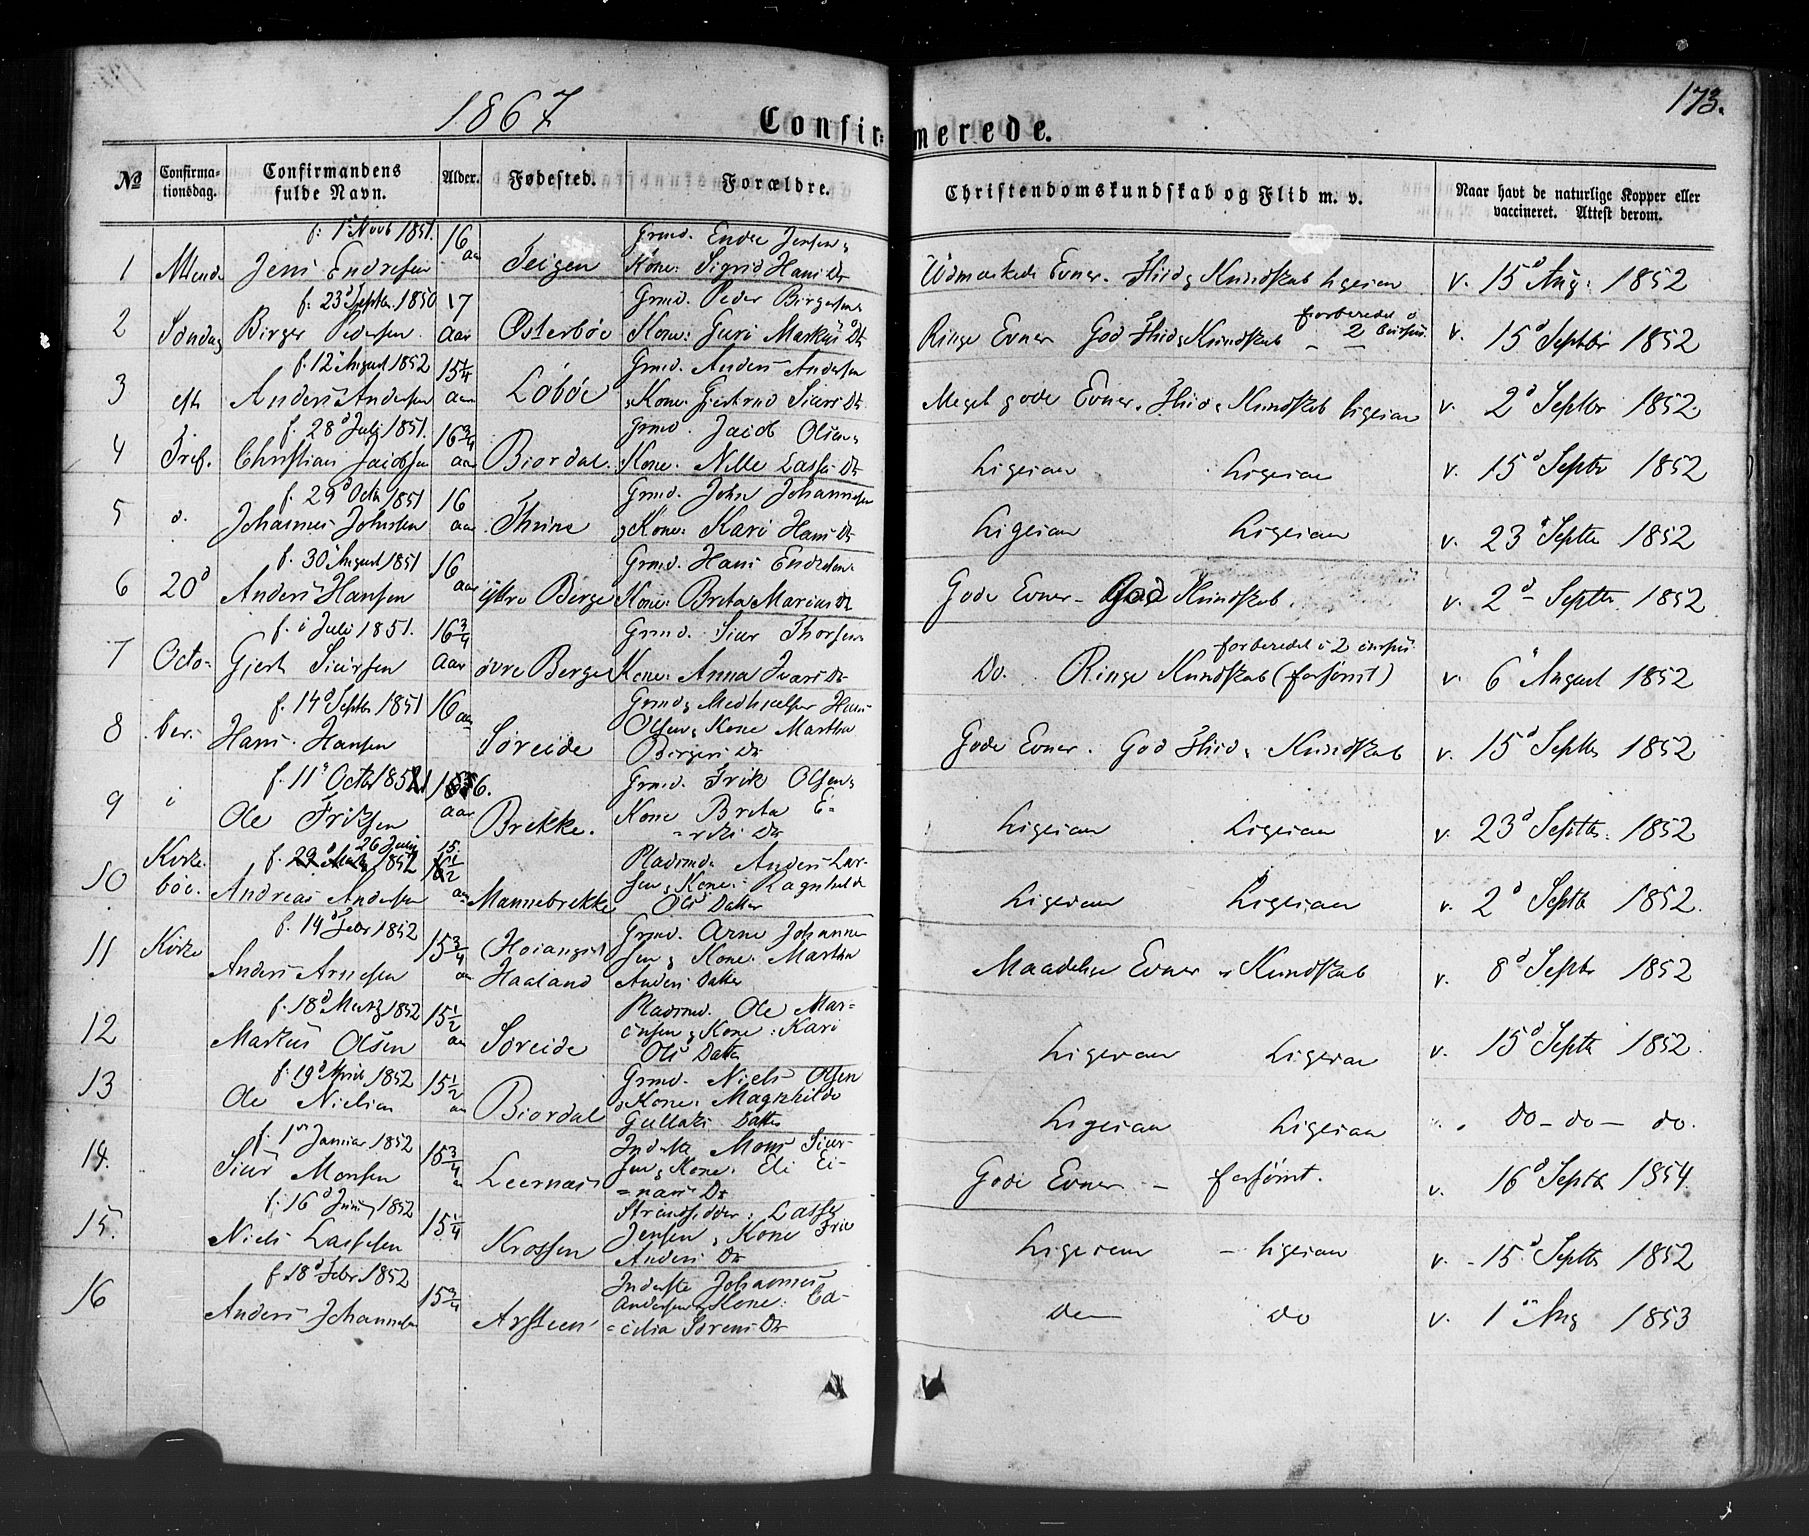 1867
173.
Confirmerede.
No
Confirmationsdag.
Confirmandens fulde Navn.
Alder.
Fødested.
Forældre.
Christendomskundskab og Flid m. v.
Naar havt de naturlige Kopper eller vaccineret. Attest derom.
f. 1 Novb 1851. 16 Grmd. Endre Jensen &
1 Jens Endresen aar Teigen Kone: Sigrid Hans Dr Udmærkede Evner. Fliid & Kundskab ligesaa v. 15d Aug: 1852
f. 23d Septbr 1850 17 Grmd. Peder Birgersen
2 Søndag Birger Pedersen aar Østerbøe Kone: Guri Markus Dr Ringe Evner God Fliid & Kundskab forberedet i 2 v. 15d Septbr 1852
f. 12 August 1852 15 1/4 Grmd. Anders Andersen
3 eft. Anders Andersen aar Løbøe & Kone Gjertrud Siurs Dr Meget gode Evner. Fliid & Kundskab ligesaa v. 2d Septbr 1852
f. 28d Juli 1851. 16 3/4 Grmd. Jacob Olsen &
4 Tref. Christian Jacobsen aar Biordal Kone: Nille Lasse Dr Ligesaa Ligesaa v. 15d Septbr 1852
f. 29d Octbr 1851 16 Grmd. John Johannesen
5 d. Johannes Johnsen aar Thune & Kone: Kari Hans Dr Ligesaa Ligesaa v. 23d Septbr 1852
f. 30 August 1851 16 Grmd. Hans Endresen
6 20d Anders Hansen aar ytre Berge Kone: Brita Marius Dr Gode Evner - God Kundskab. v. 2d Septbr 1852
f. Juli 1851. 16 3/4 Grmd. Siur Thorsen
7 Octo- Gjert Siursen aar øvre Berge Kone: Anna Ivars Dr Do. Ringe Kundskab (forsømt) forberedet i 2 v. 6 August 1852
f. 14d Septbr 1851 16 aar Grmd & Medhjælper Hans
8 ber. Hans Hansen Søreide Olsen & Kone Martha Birgers Dr Gode Evner. God Fliid & Kundskab v. 15d Septbr 1852
f. 11 Octbr 1851 16. Grmd. Frik Olsen &
9 i Ole Friksen aar Brekke. Kone Brita E=riks Dr Ligesaa Ligesaa v. 23d Septbr: 1852
f. 26 Juni 1852 15 1/2 Pladsmd. Anders Lar-
10 Kirkebøe. Andreas Andersen aar Mannebrekke sen & Kone: Ragnhilde Ols Datter Ligesaa Ligesaa v. 2d Septb 1852.
f. 14d Febr 1852 15 3/4 Grmd. Arne Johanne
11 Kirke Anders Arnesen aar Haaland sen & Kone: Martha Anders Datter Maadelige Evner & Kundskab v. 8d Septbr 1852
f. 18d Marts 1852 15 1/2 Pladsmd. Ole Mar=
12 Markus Olsen aar Søreide & Kone: Kari Ols Datter Ligesaa Ligesaa v. 15d Septb 1852.
f. 19d April 1852 15 1/2 Grmd. Niels Olsen
13 Ole Nielsen aar Biordal & Kone: Magnhilde Gullaks Datter Ligesaa Ligesaa do - do - do.
f. 1 Januar 1852 15 3/4 Inderste Mons Siur-
14. Siur Monsen Leernæs sen & Kone: Eli Ei=nars Dr Gode Evner - forsømt. v. 16d Septbr 1854
f. 16d Juni 1852 15 1/4 Strandsidder: Lasse
15. Niels Lassesen Krossen Jensen & Kone Anders Dr Ligesaa - ligesaa v. 15d Septbr 1852
f. 18d Febr 1852 15 3/4 Inderste Johannes
16 Anders Johannesen Arsteen Andersen & Kone: Ce=cilia Sørens Dr do do v. 1 Aug 1853